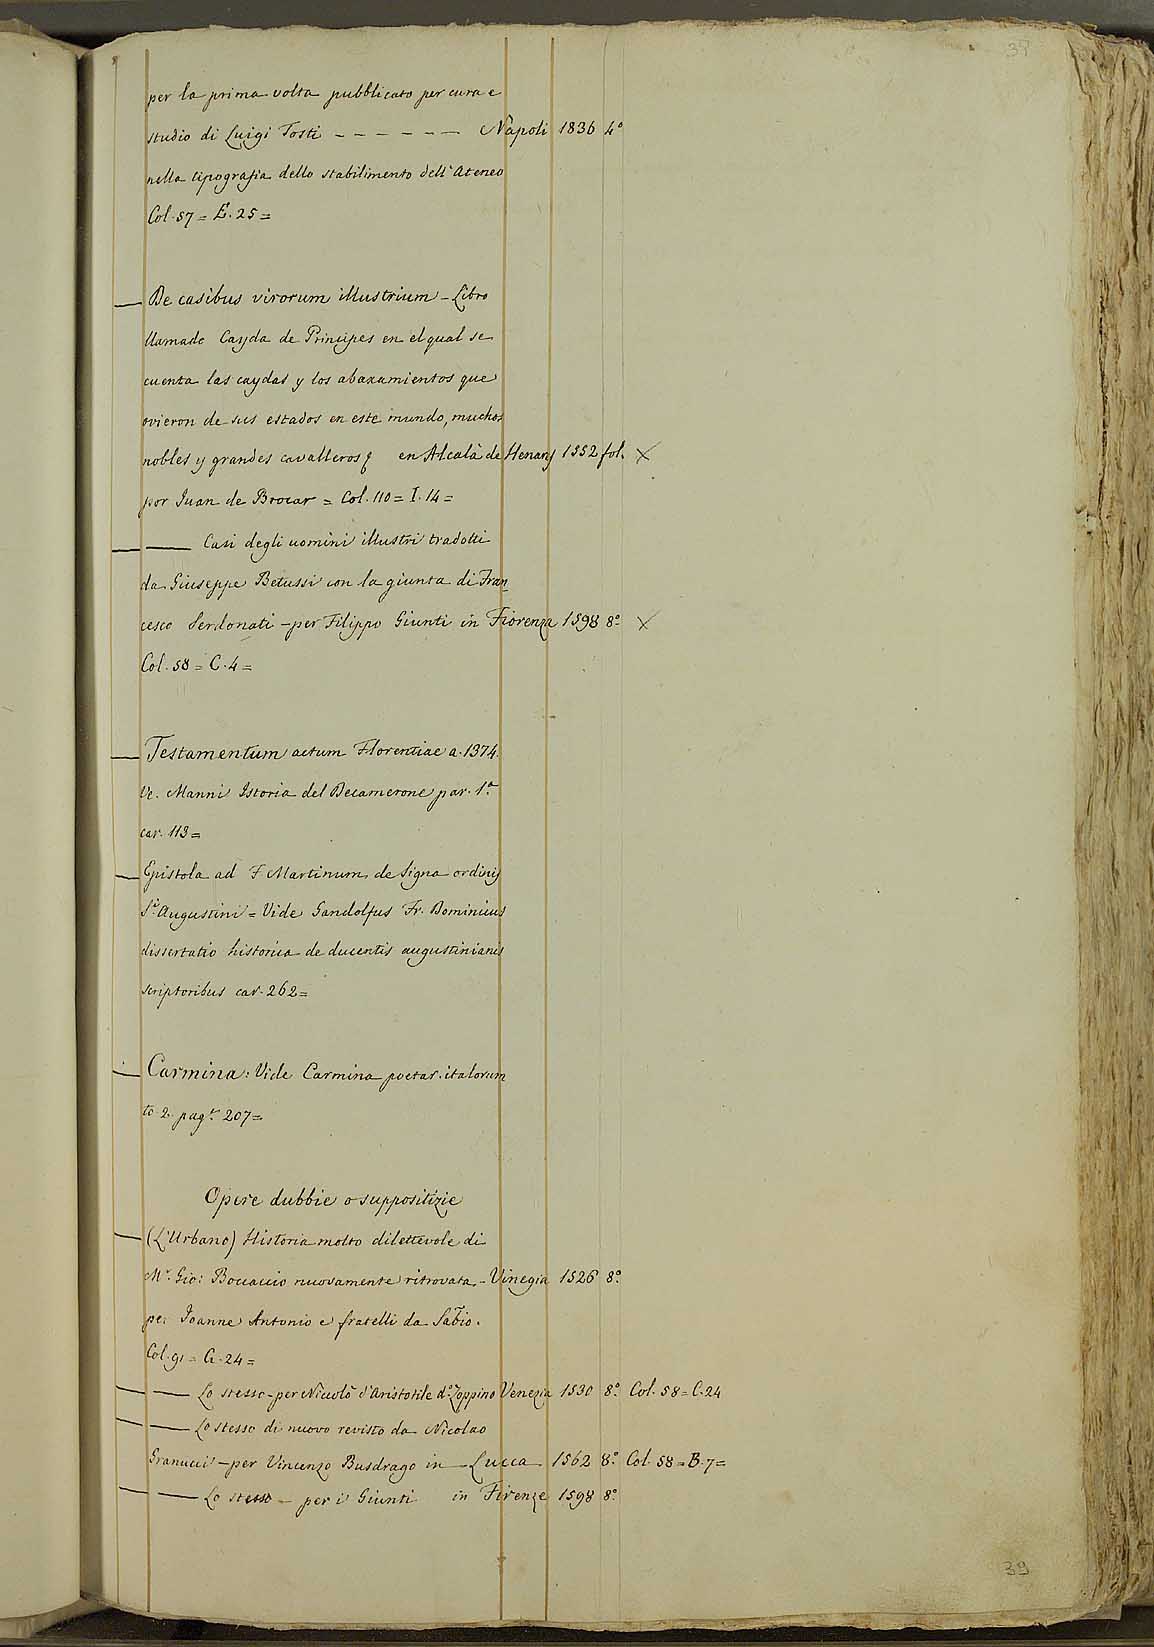 39
per la prima volta pubblicato per cura e
studio di Luigi Tosti - - - - - - - Napoli 1836 4°
nella tipografia dello stabilimento dell'Ateneo
Col. 57 = E. 25 =
— De casibus virorum illustrium - Libro
llamado Cayda de Principes en el qual se
cuenta las caydas y los abaxamientos que
ovieron de sus estados en este mundo, muchos
nobles y grandes cavalleros en Alcalà de Henares 1552 fol. X
por Juan de Brocar = Col. 110 = I. 14 =
— — Casi degli uomini illustri tradotti
da Giuseppe Betussi con la giunta di Fran
cesco Serdonati - per Filippo Giunti in Fiorenza 1598 8° X
Col. 58 = C. 4 =
— Testamentum actum Florentiae a. 1374.
Ve. Manni Istoria del Decamerone par. 1ª
car. 113 =
— Epistola ad F. Martinum de Signa ordinis
Sti Augustini = Vide Gandolfus Fr. Dominicus
dissertatio historica de ducentis augustinianis
scriptoribus car. 262 =
— Carmina: Vide Carmina poetar. italorum
to. 2. pag. 207 =
Opere dubbie o suppositizie
— (L'Urbano) Historia molto dilettevole di
Mr. Gio: Boccaccio nuovamente ritrovata - Vinegia 1526 8°
per Joanne Antonio e fratelli da Sabio.
Col. 91 = G. 24 =
— — Lo stesso - per Nicolò d'Aristotile do Zoppino Venezia 1530 8° Col. 58 = C. 24
— — Lo stesso di nuovo revisto da Nicolao
Granucci - per Vincenzo Busdrago in - Lucca - 1562 8° Col. 58 = B. 7 =
— — Lo stesso - per i Giunti in Firenze 1598 8°
39